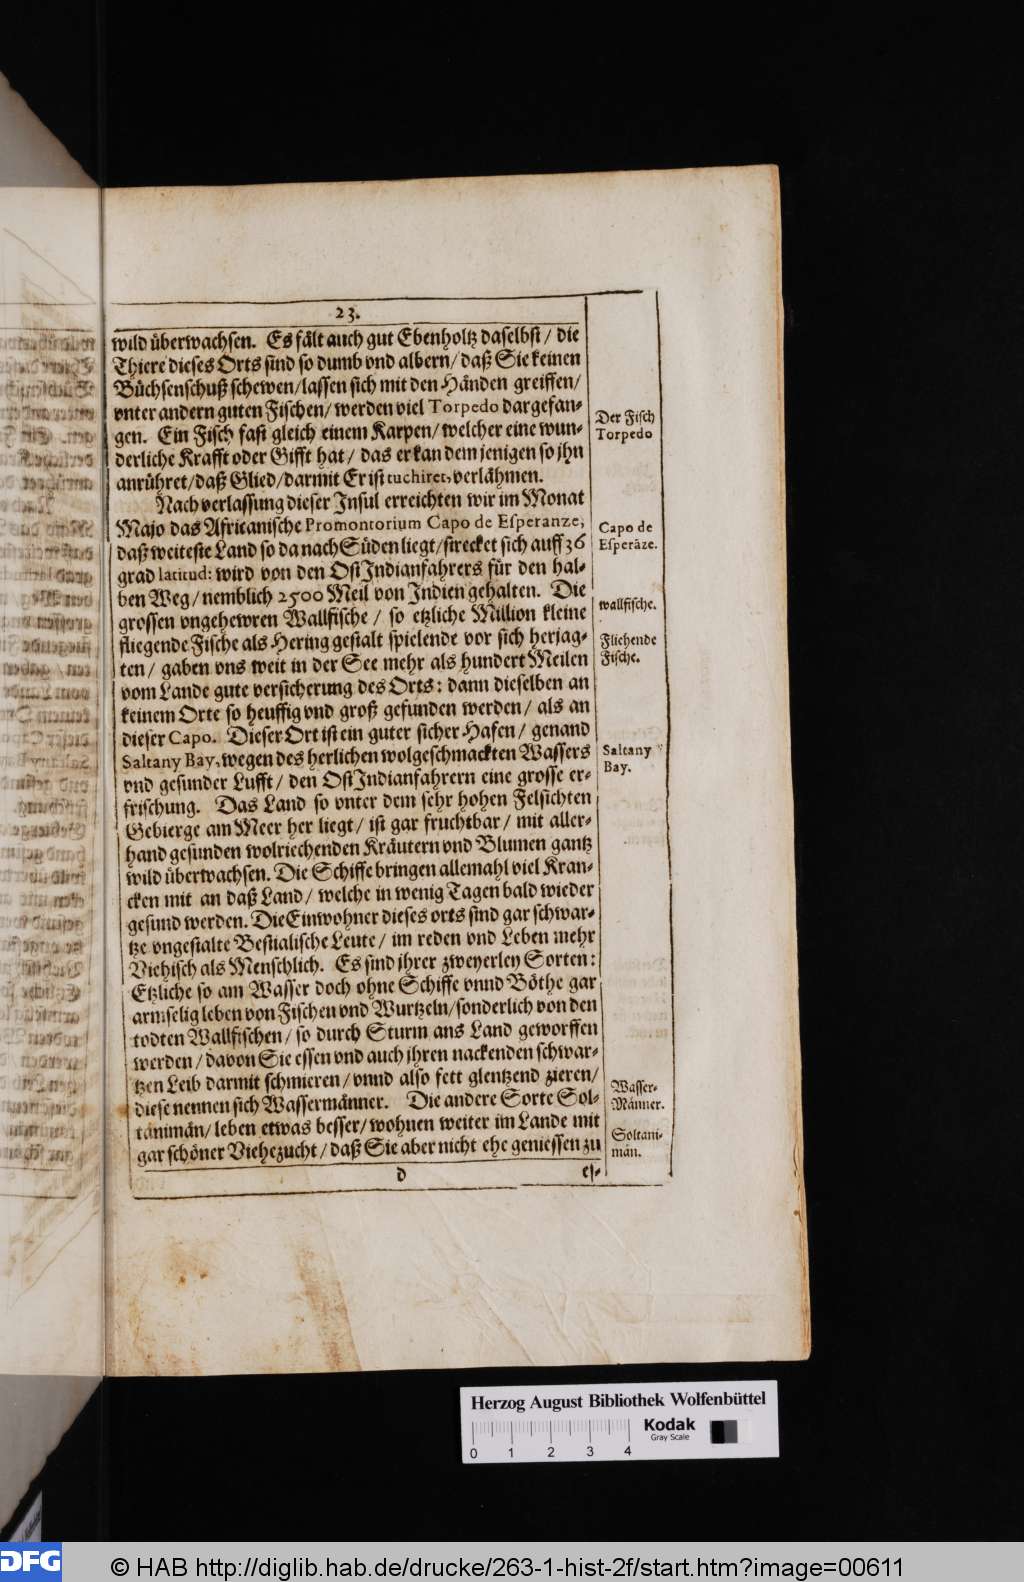 23.
wild überwachsen. Es fält auch gut Ebenholtz daselbst / die
Thiere dieses Orts sind so dumb vnd albern / daß Sie keinen
Büchsenschuß schewen / lassen sich mit den Händen greiffen /
vnter andern guten Fischen / werden viel Torpedo dar gefan-
gen. Ein Fisch fast gleich einem Karpen / welcher eine wun-
derliche Krafft oder Gifft hat / das er kan dem jenigen so jhn
anrühret / daß Glied / darmit Er ist tuchiret, verlähmen.
Nach verlassung dieser Insul erreichten wir im Monat
Majo das Africanische Promontorium Capo de Esperanze,
daß weiteste Land so da nach Süden liegt / strecket sich auff 36
grad latitud: wird von den OstIndianfahrers für den hal-
ben Weg / nemblich 2500 Meil von Indien gehalten. Die
grossen vngehewren Wallfische / so etzliche Million kleine
fliegende Fische als Hering gestalt spielende vor sich herjag-
ten / gaben vns weit in der See mehr als hundert Meilen
vom Lande gute versicherung des Orts: dann dieselben an
keinem Orte so heuffig vnd groß gefunden werden / als an
dieser Capo. Dieser Ort ist ein guter sicher Hafen / genand
Saltany Bay, wegen des herlichen wolgeschmackten Wassers
vnd gesunder Lufft / den OstIndianfahrern eine grosse er-
frischung. Das Land so vnter dem sehr hohen Felsichten
Gebierge am Meer her liegt / ist gar fruchtbar / mit aller-
hand gesunden wolriechenden Kräutern vnd Blumen gantz
wild überwachsen. Die Schiffe bringen allemahl viel Kran-
cken mit an daß Land / welche in wenig Tagen bald wieder
gesund werden. Die Einwohner dieses orts sind gar schwar-
tze vngestalte Bestialische Leute / im reden vnd Leben mehr
Viehisch als Menschlich. Es sind jhrer zweyerley Sorten:
Etzliche so am Wasser doch ohne Schiffe vnnd Böthe gar
armselig leben von Fischen vnd Wurtzeln / sonderlich von den
todten Wallfischen / so durch Sturm ans Land geworffen
werden / davon Sie essen vnd auch jhren nackenden schwar-
tzen Leib darmit schmieren / vnnd also fett glentzend zieren /
diese nennen sich Wassermänner. Die andere Sorte Sol-
tanimän / leben etwas besser / wohnen weiter im Lande mit
gar schöner Viehezucht / daß Sie aber nicht ehe geniessen zu
d es-
Der Fisch
Torpedo
Capo de
Esperāze.
wallfische.
Fliehende
Fische.
Saltany
Bay.
Wasser-
Männer.
Soltani-
män.
Herzog August Bibliothek Wolfenbüttel
Kodak
Gray Scale
0 1 2 3 4
DFG
© HAB http://diglib.hab.de/drucke/263-1-hist-2f/start.htm?image=00611